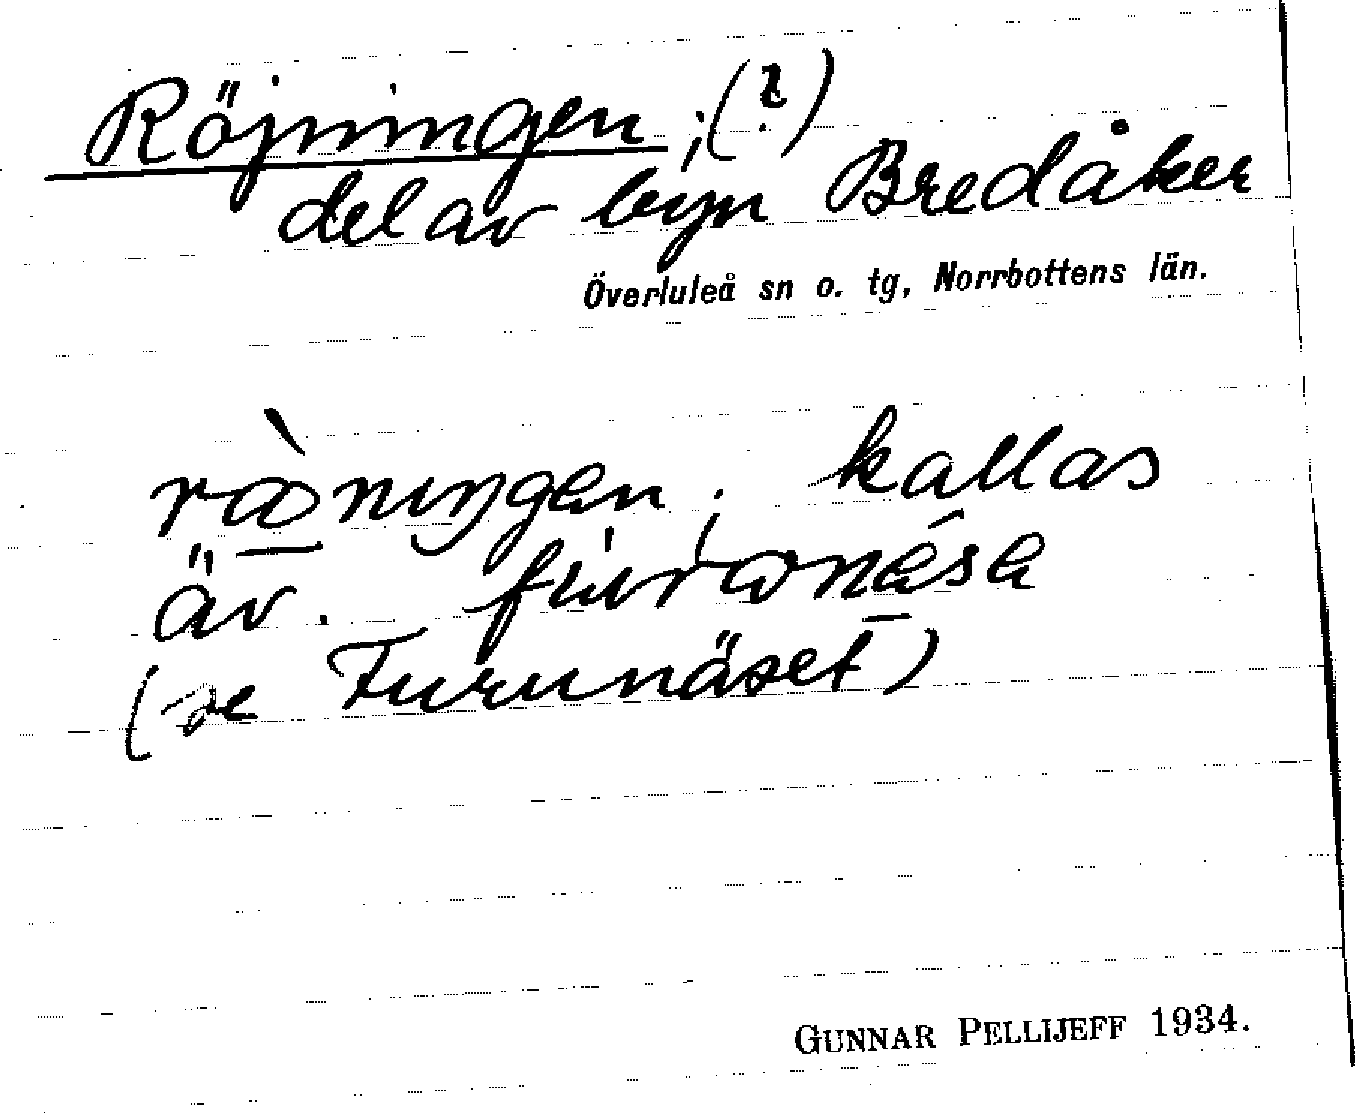 Röjningen ; (?)
del av byn Bredåker
Överluleå sn o. tg, Norrbottens län.
kallas
äv.
(se Furunäset)
GUNNAR PELLIJEFF 1934.